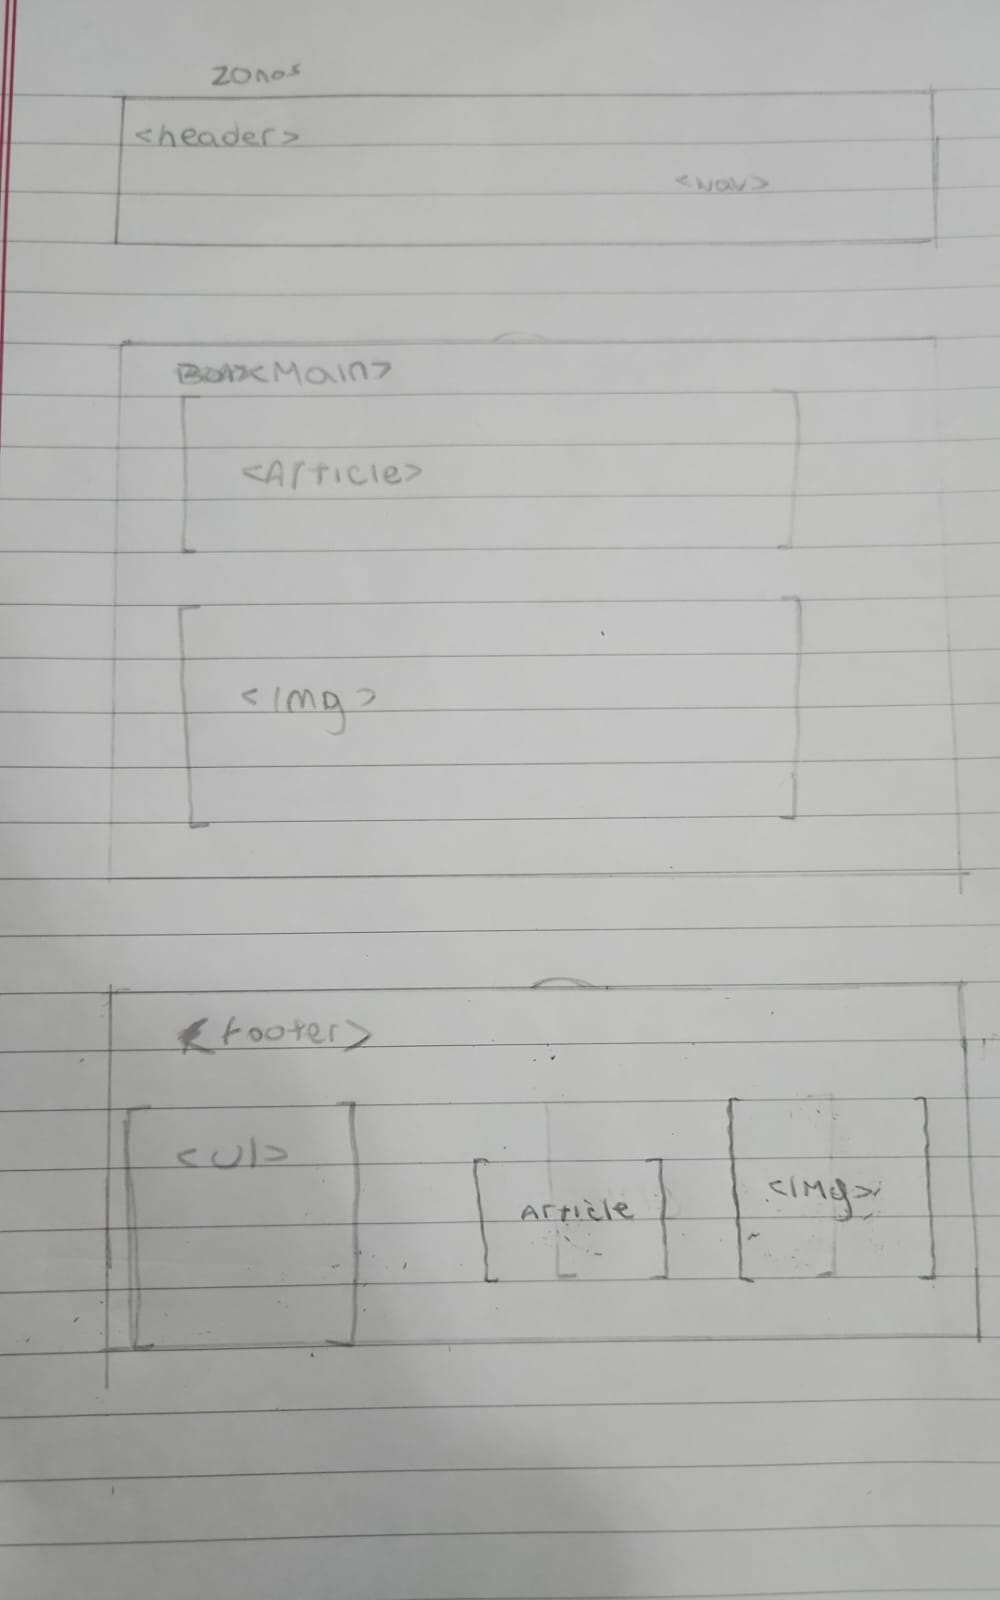 zonas
<header>
<nav>
<Main>
<Article>
<Img>
<footer>
<ul>
Article
<IMg>